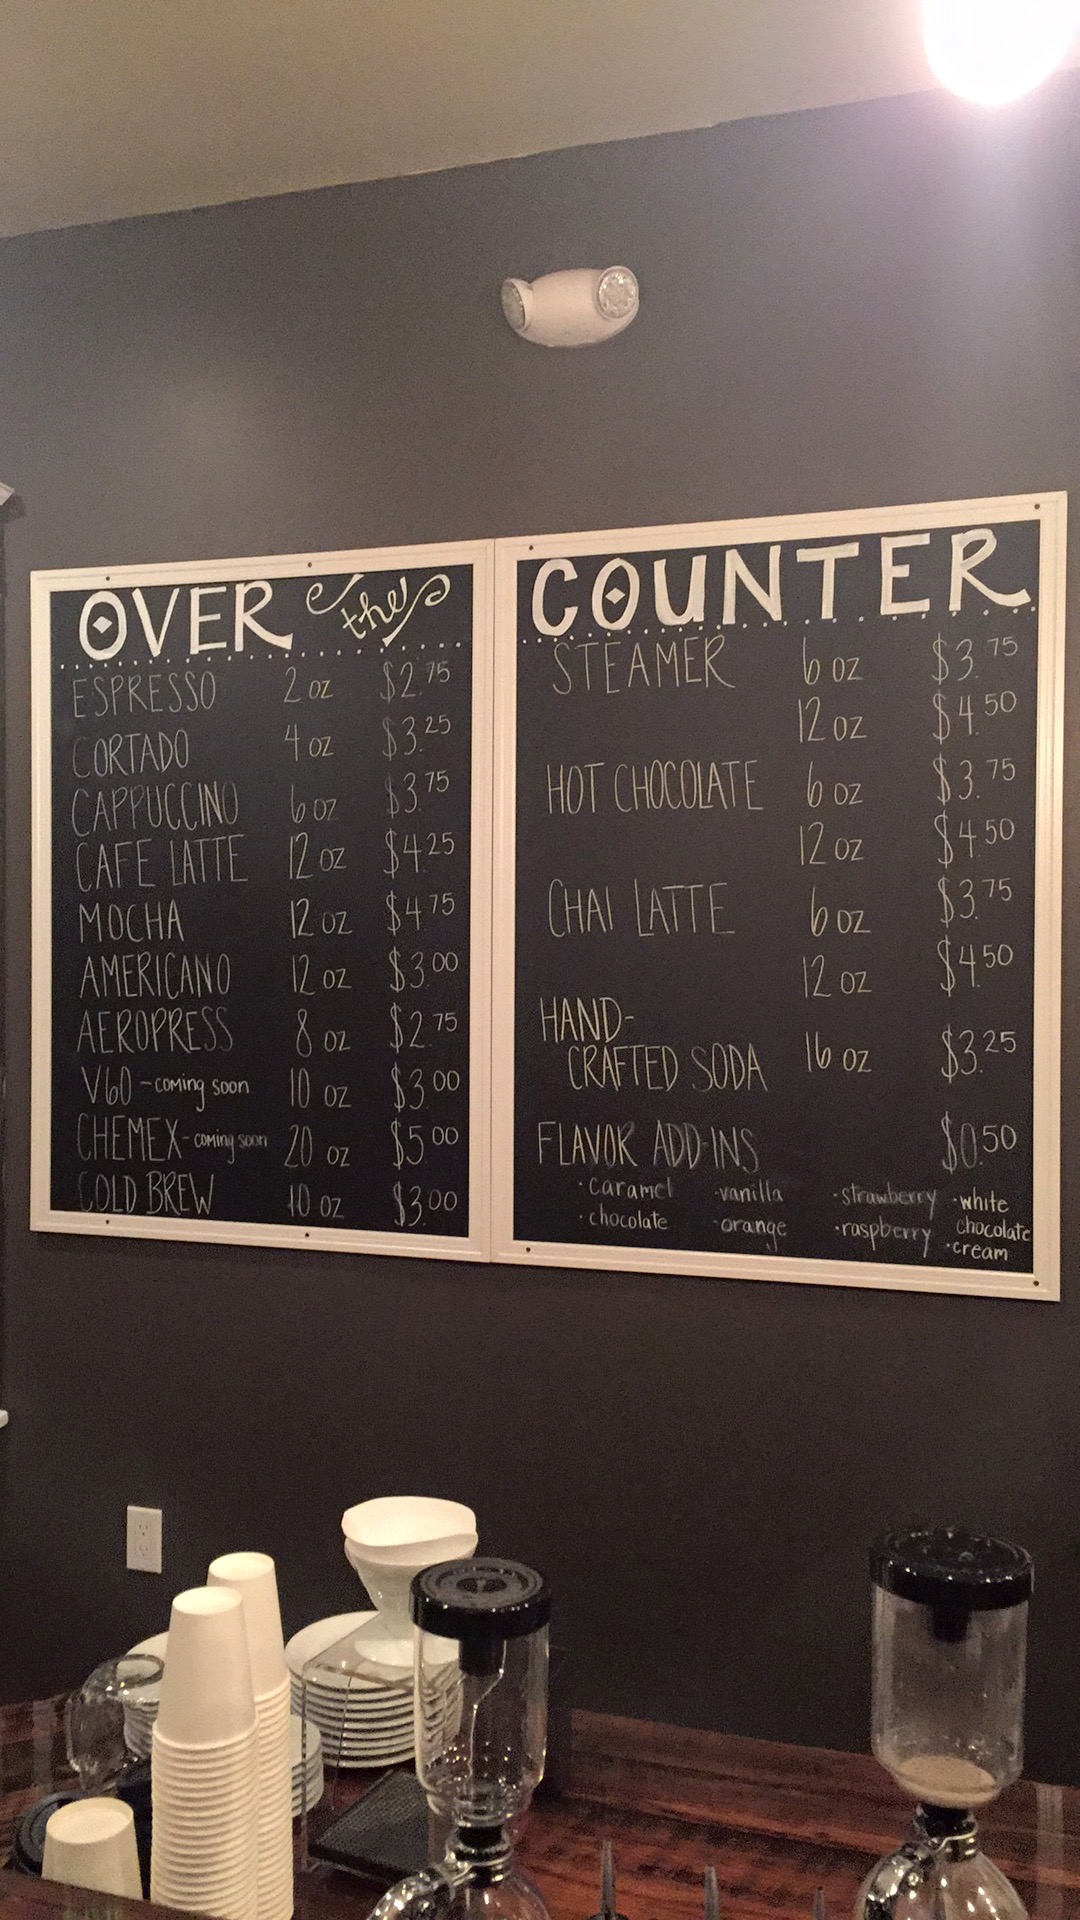 OVER the COUNTER
ESPRESSO 2 oz $2.75
CORTADO 4 oz $3.25
CAPPUCCINO 6 oz $3.75
CAFE LATTE 12 oz $4.25
MOCHA 12 oz $4.75
AMERICANO 12 oz $3.00
AEROPRESS 8 oz $2.75
V60 - coming soon 10 oz $3.00
CHEMEX - coming soon 20 oz $5.00
COLD BREW 10 oz $3.00
STEAMER 6 oz $3.75
12 oz $4.50
HOT CHOCOLATE 6 oz $3.75
12 oz $4.50
CHAI LATTE 6 oz $3.75
12 oz $4.50
HAND-
CRAFTED SODA 16 oz $3.25
FLAVOR ADD-INS $0.50
· caramel · vanilla · strawberry · white
· chocolate · orange · raspberry chocolate
· cream